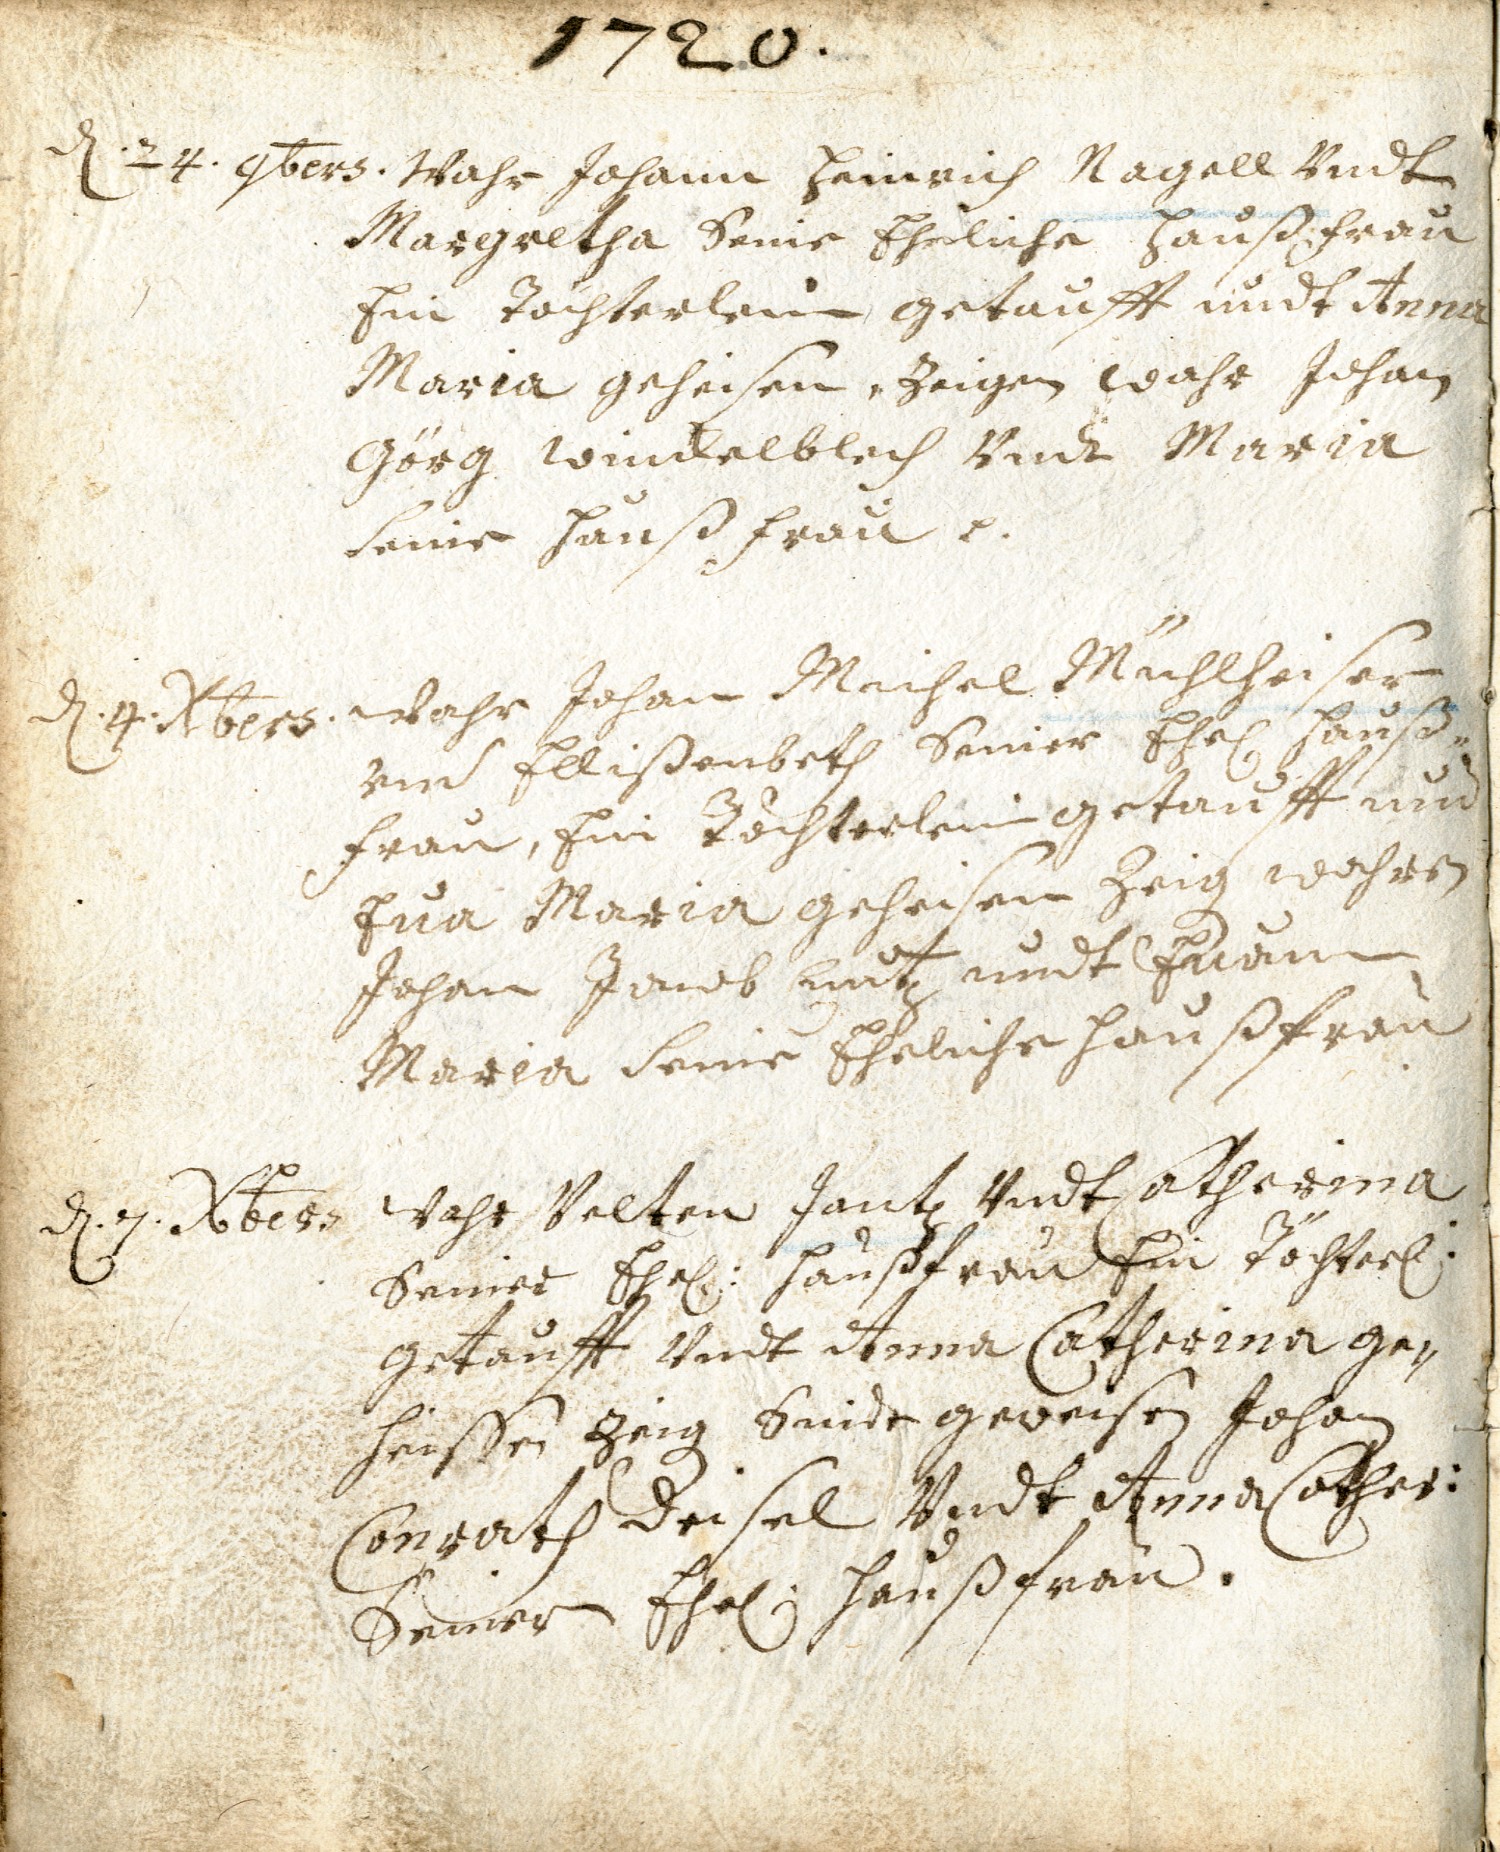 1720.
d. 24. 9bers. Wahr Johann Heinrich Nagell Undt
Margretha Seine Eheliche Haußfrau
Ein Töchterlein getaufft undt Anna
Maria geheisen, Zeigen wahr Johan
Görg Winckelblech Undt Maria
seine Hauß frau
d. 4. Xbers. Wahr Johan Michel Mühlheiser
und Ellißenbeth Seiner Ehel Hauß„
frau, Ein Töchterlein getaufft und
Eva Maria geheisen Zeig wahren
Johan Jacob Lutz undt
Maria seine Eheliche Haußfrau
d. 7. Xbers Wahr Velten Jantz Undt Catherina
Seiner Ehel: Haußfrau Ein Töchterl:
getaufft Undt Anna Catherina ge„
heissen Zeig Seindt geweisen Johan
Conrath Deisel Undt Anna Cather:
Seiner Ehel: Haußfrau.